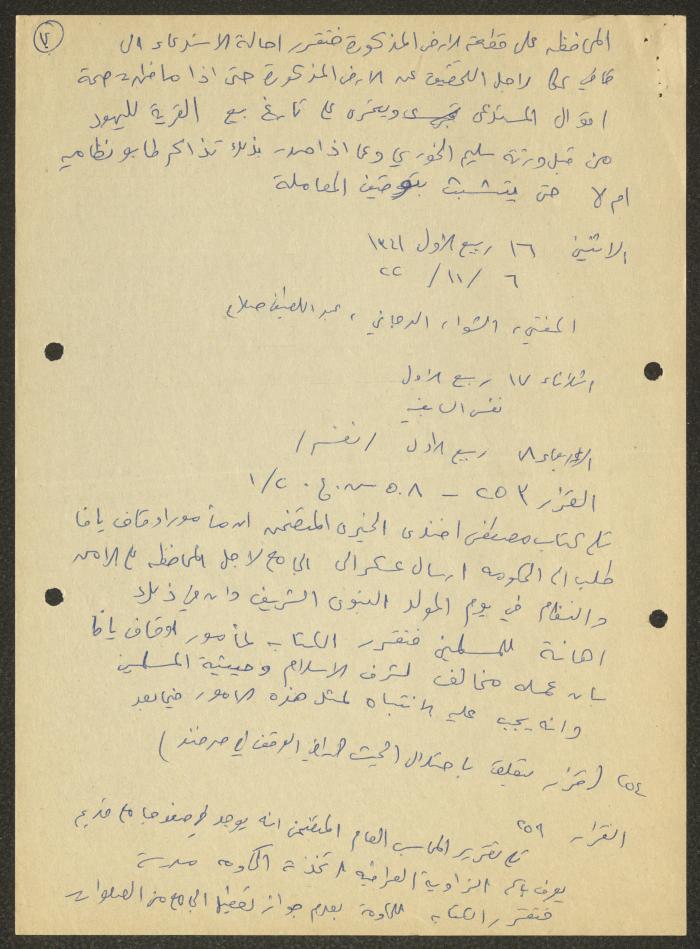 ٧
المحافظه على قطعة الارض المذكورة فتقرر احالة الاستدعاء الى
قاضي عكا لاجل التحقيق عن الارض المذكورة حتى اذا ما ظهرت صحة
اقوال المستدعى ويتحرى على تاريخ بيع القرية لليهود
من قبل ورثة سليم الخوري وعما اذا صدر بذلك تذاكر طابو نظاميه
ام لا حتى يتشبث بتوقيف المعاملة
الاثنين ١٦ ربيع الاول ١٣٤١
٦ /١١/ ٢٢
المفتي، الشوا، الدجاني، عبد اللطيف صلاح
الثلاثاء ١٧ ربيع الاول
نفس السابقين
الاربعاء ١٨ ربيع الاول /نفسهم/
القرار ٢٥٣ – ٥٠٨ س.ع. ١/٢٠
تلي كتاب مصطفى افندى الخيرى المتضمن ان مأمور اوقاف يافا
طلب الى الحكومه ارسال عسكر الى الجامع لاجل المحافظه على الامن
والنظام في يوم المولد النبوى الشريف وان في ذلك
اهانة للمسلمين فتقرر الكتاب لمأمور اوقاف يافا
بان عمله مخالف لشرف الاسلام وحيثية المسلمين
وانه يجب عليه الانتباه لمثل هذه الامور فيما بعد
٢٥٤ (قرار يتعلق باحتلال الجيش اراضي الوقف في صرفند)
القرار ٢٥٩
تلي تقرير المحاسب العام المتضمن انه يوجد في صفد جامع قديم
يعرف باسم الزاوية العراقية اتخذته الحكومه مدرسة
فتقرر الكتابه للحكومة بعدم جواز تعطيل الجامع من الصلوات